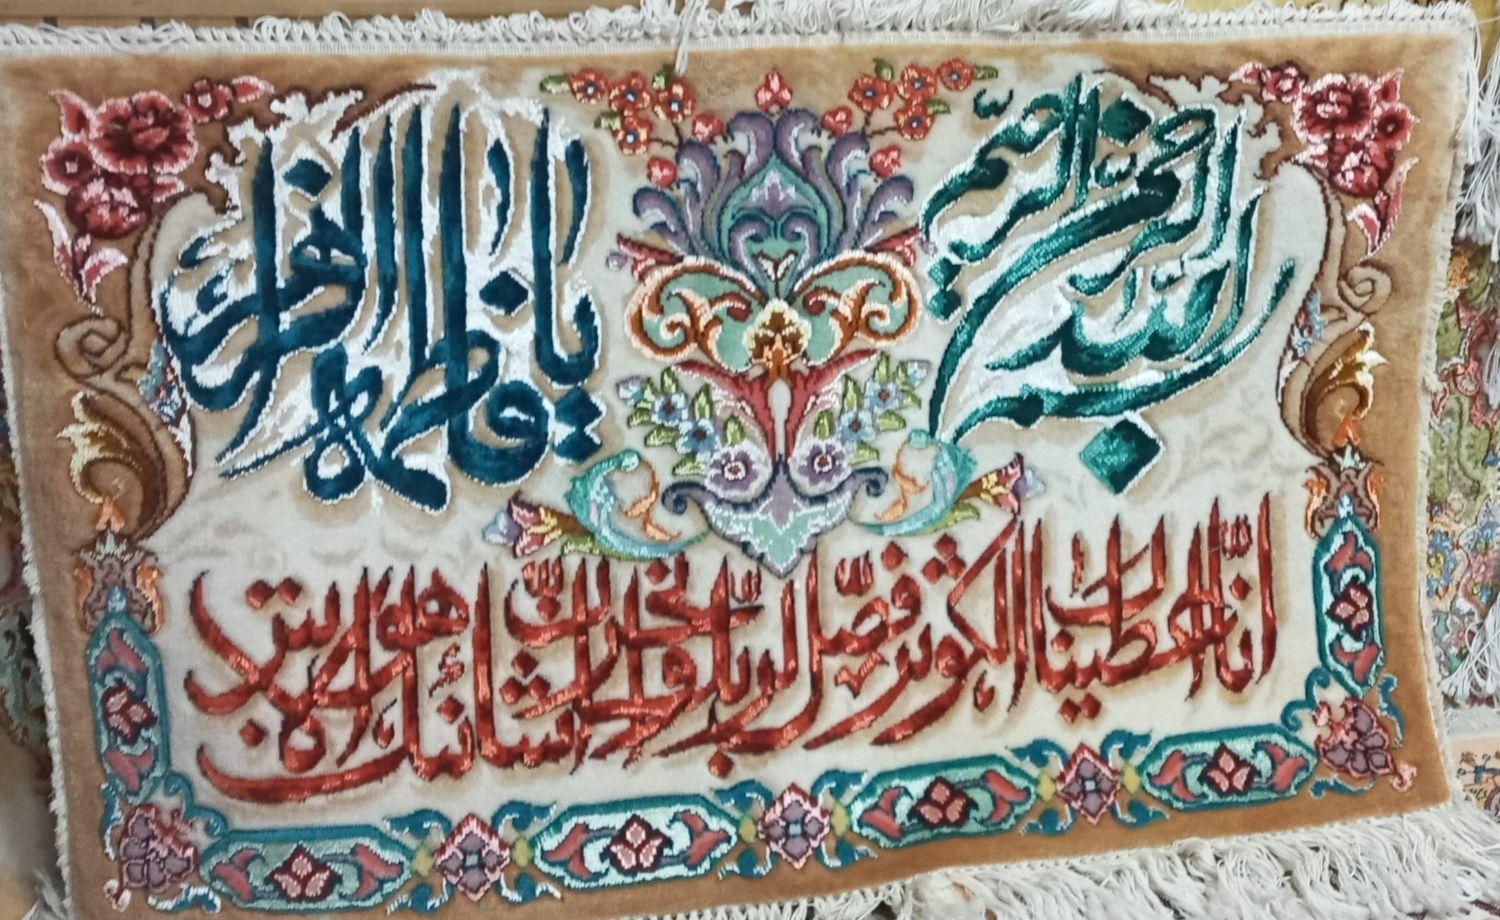 بسم الله الرحمن الرحیم
یا فاطمة الزهرا
انّا اعطیناک الکوثر فصلّ لربک وانحر انّ شانئک هو الابتر